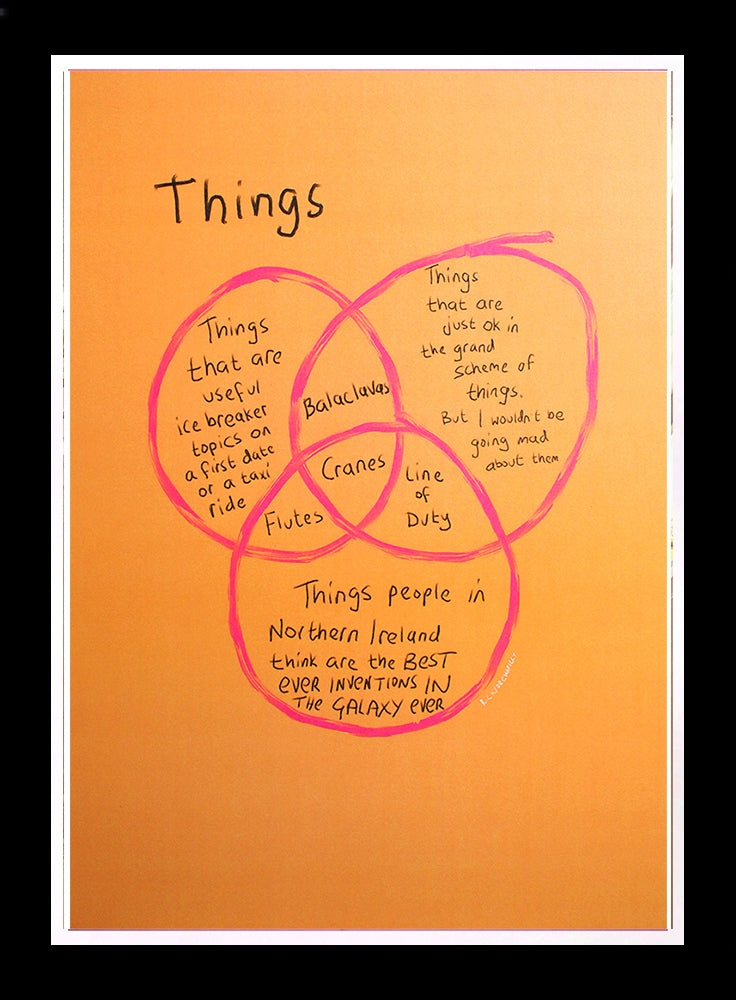 Things
Things
that are
useful
ice breaker
topics on
a first date
or a taxi
ride
Things
that are
just ok in
the grand
scheme of
things.
But I wouldnt be
going mad
about them
Balaclavas
Cranes
Line
of
Duty
Flutes
Things people in
Northern Ireland
think are the BEST
EVER INVENTIONS IN
THE GALAXY EVER